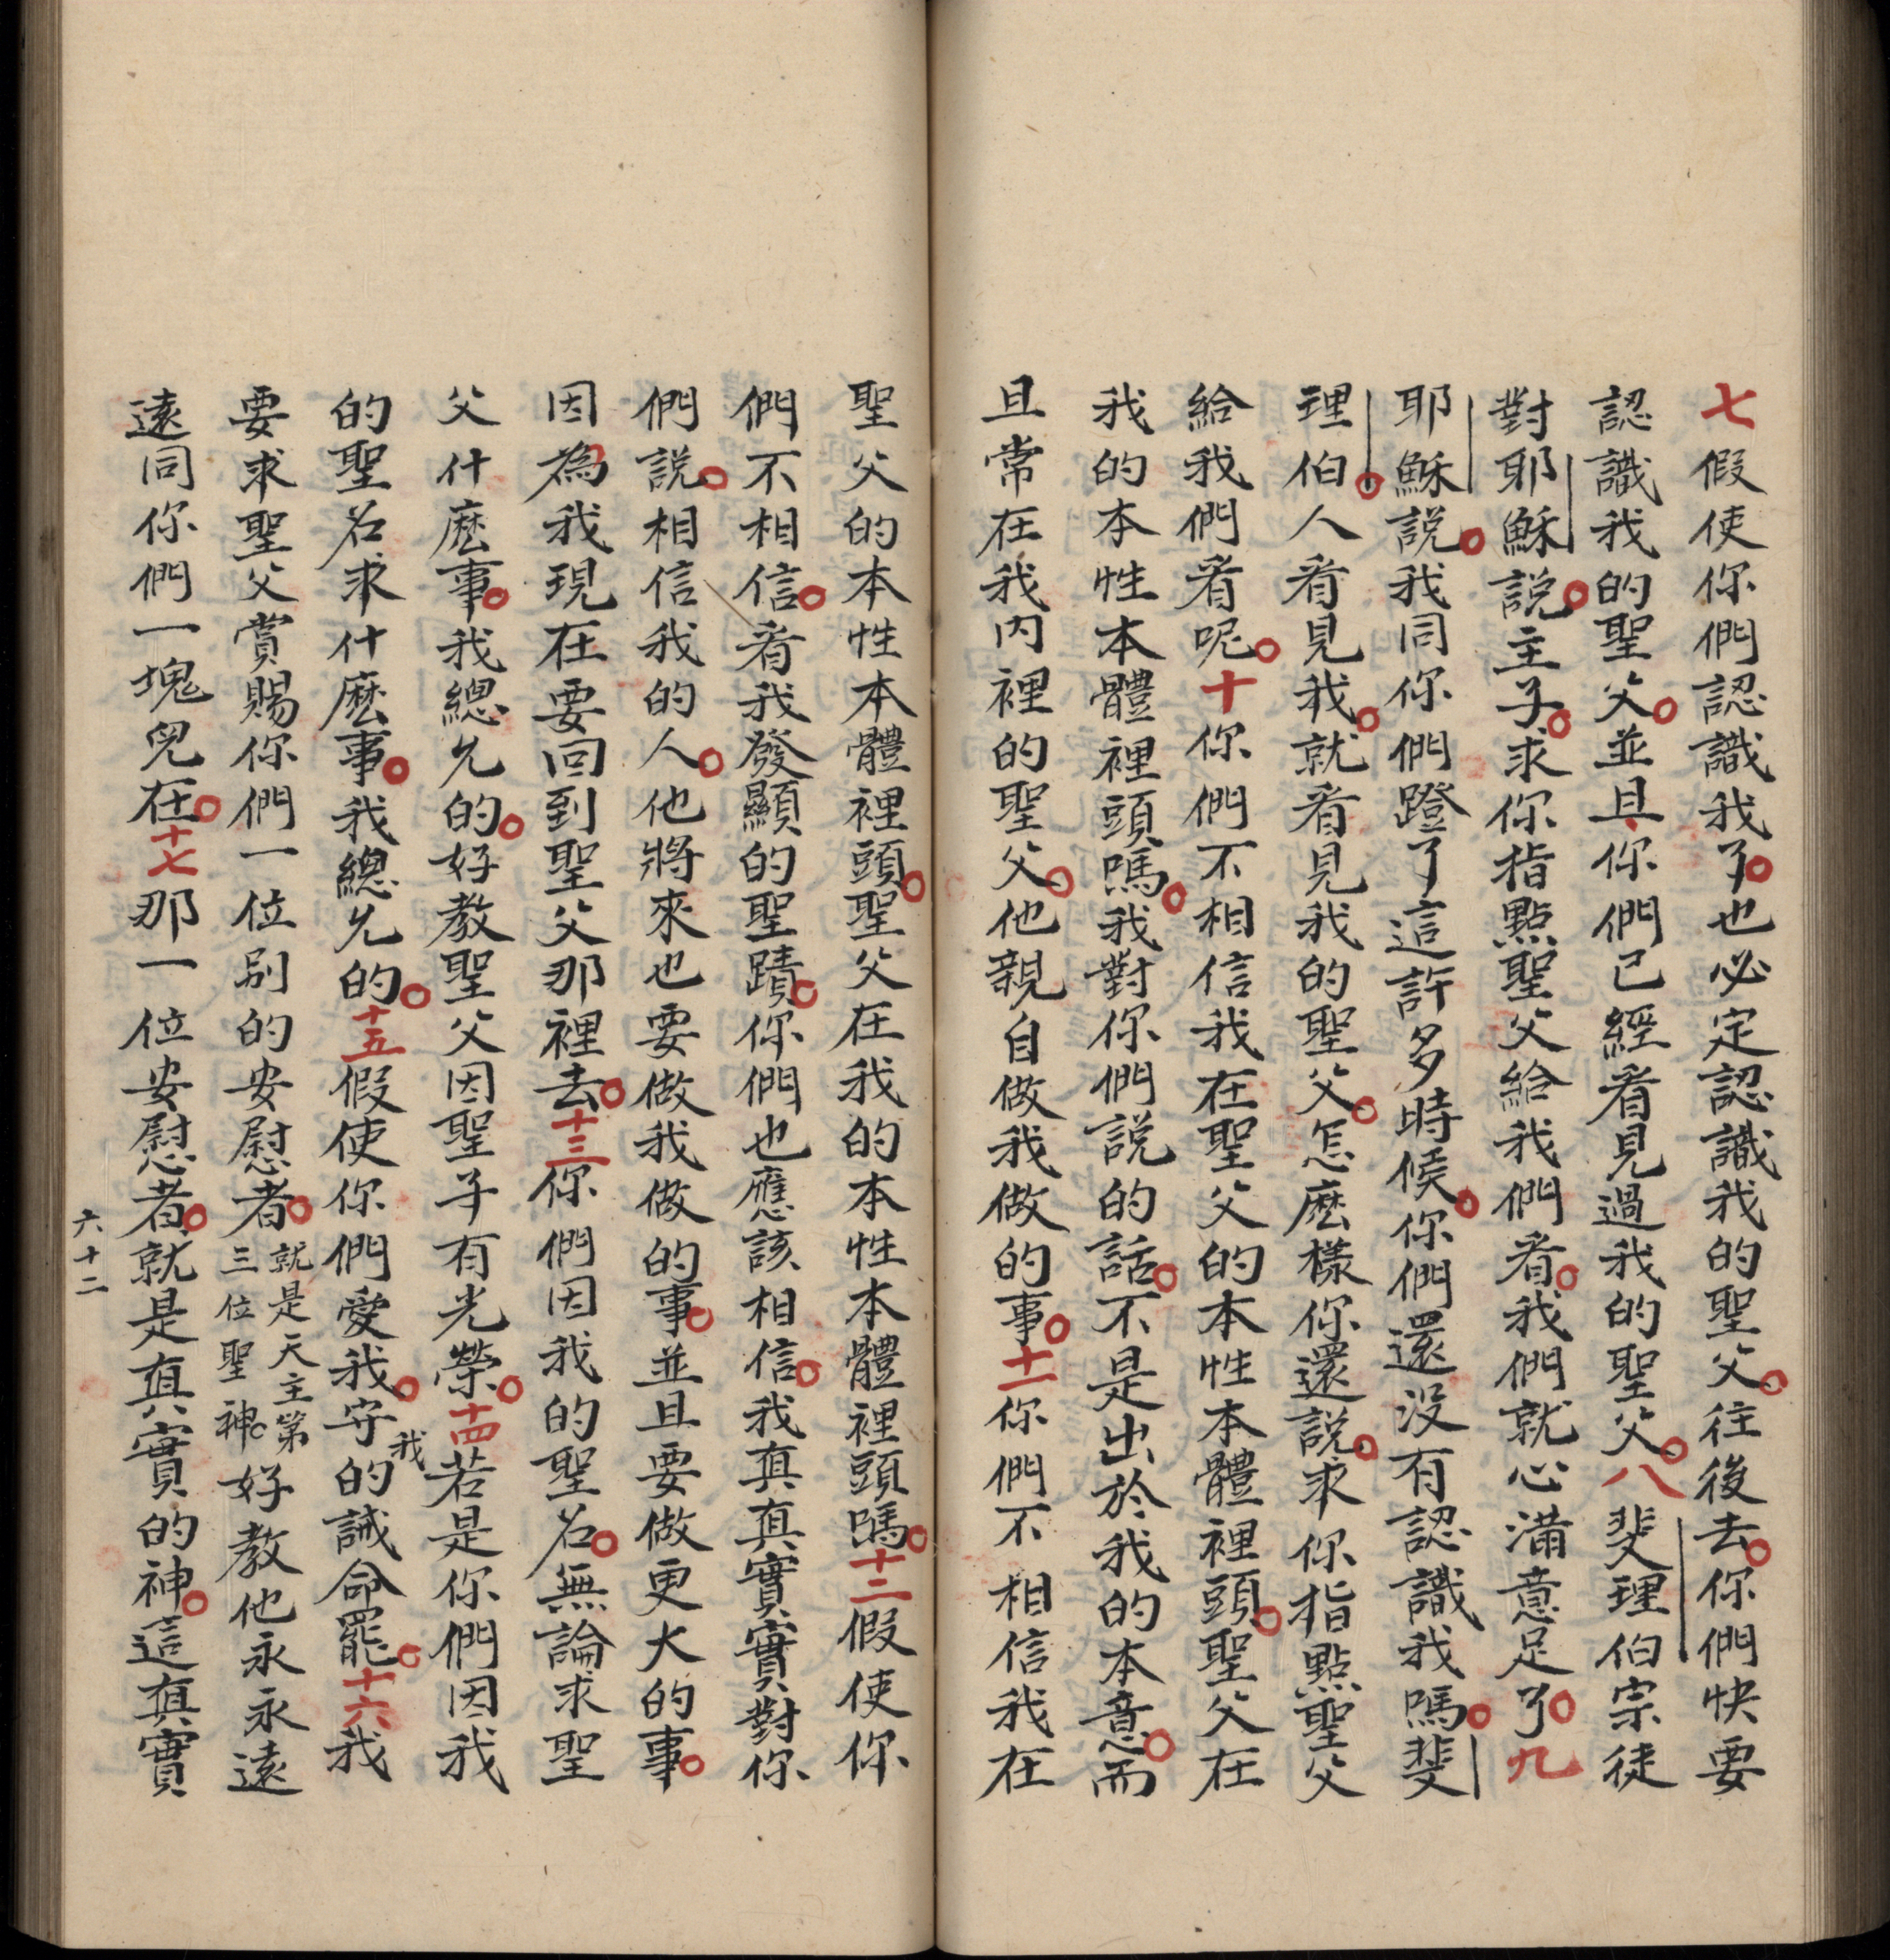 七假使你們認識我了。也必定認識我的聖父。往後去。你們快要
認識我的聖父。並且、你們已經看見過我的聖父。八斐理伯宗徒
對耶穌說。主子。求你指點聖父給我們看。我們就心滿意足了。九
耶穌說。我同你們蹬了這許多時候。你們還沒有認識我嗎。斐
理伯。人看見我。就看見我的聖父。怎麽樣你還説。求你指點聖父
給我們看呢。十你們不相信我在聖父的本性本體裡頭。聖父在
我的本性本體裡頭嗎。我對你們説的話。不是出於我的本意。而
且常在我內裡的聖父。他親自做我做的事。十一你們不相信我在
聖父的本性本體裡頭。聖父在我的本性本體裡頭嗎。十二假使你
們不相信。看我發顯的聖蹟。你們也應該相信。我真真實實對你
們説。相信我的人。他將來也要做我做的事。並且要做更大的事。
因為我現在要回到聖父那裡去。十三你們因我的聖名。無論求聖
父什麽事。我總允的。好教聖父因聖子有光榮。十四若是你們因我
的聖名求什麽事。我總允的。十五假使你們愛我。守我的誡命罷。十六我
要求聖父賞賜你們一位別的安慰者。就是天主第三位聖神。好教他永永遠
遠同你們一塊兒在。十七那一位安慰者。就是真實的神。這真實
六十二